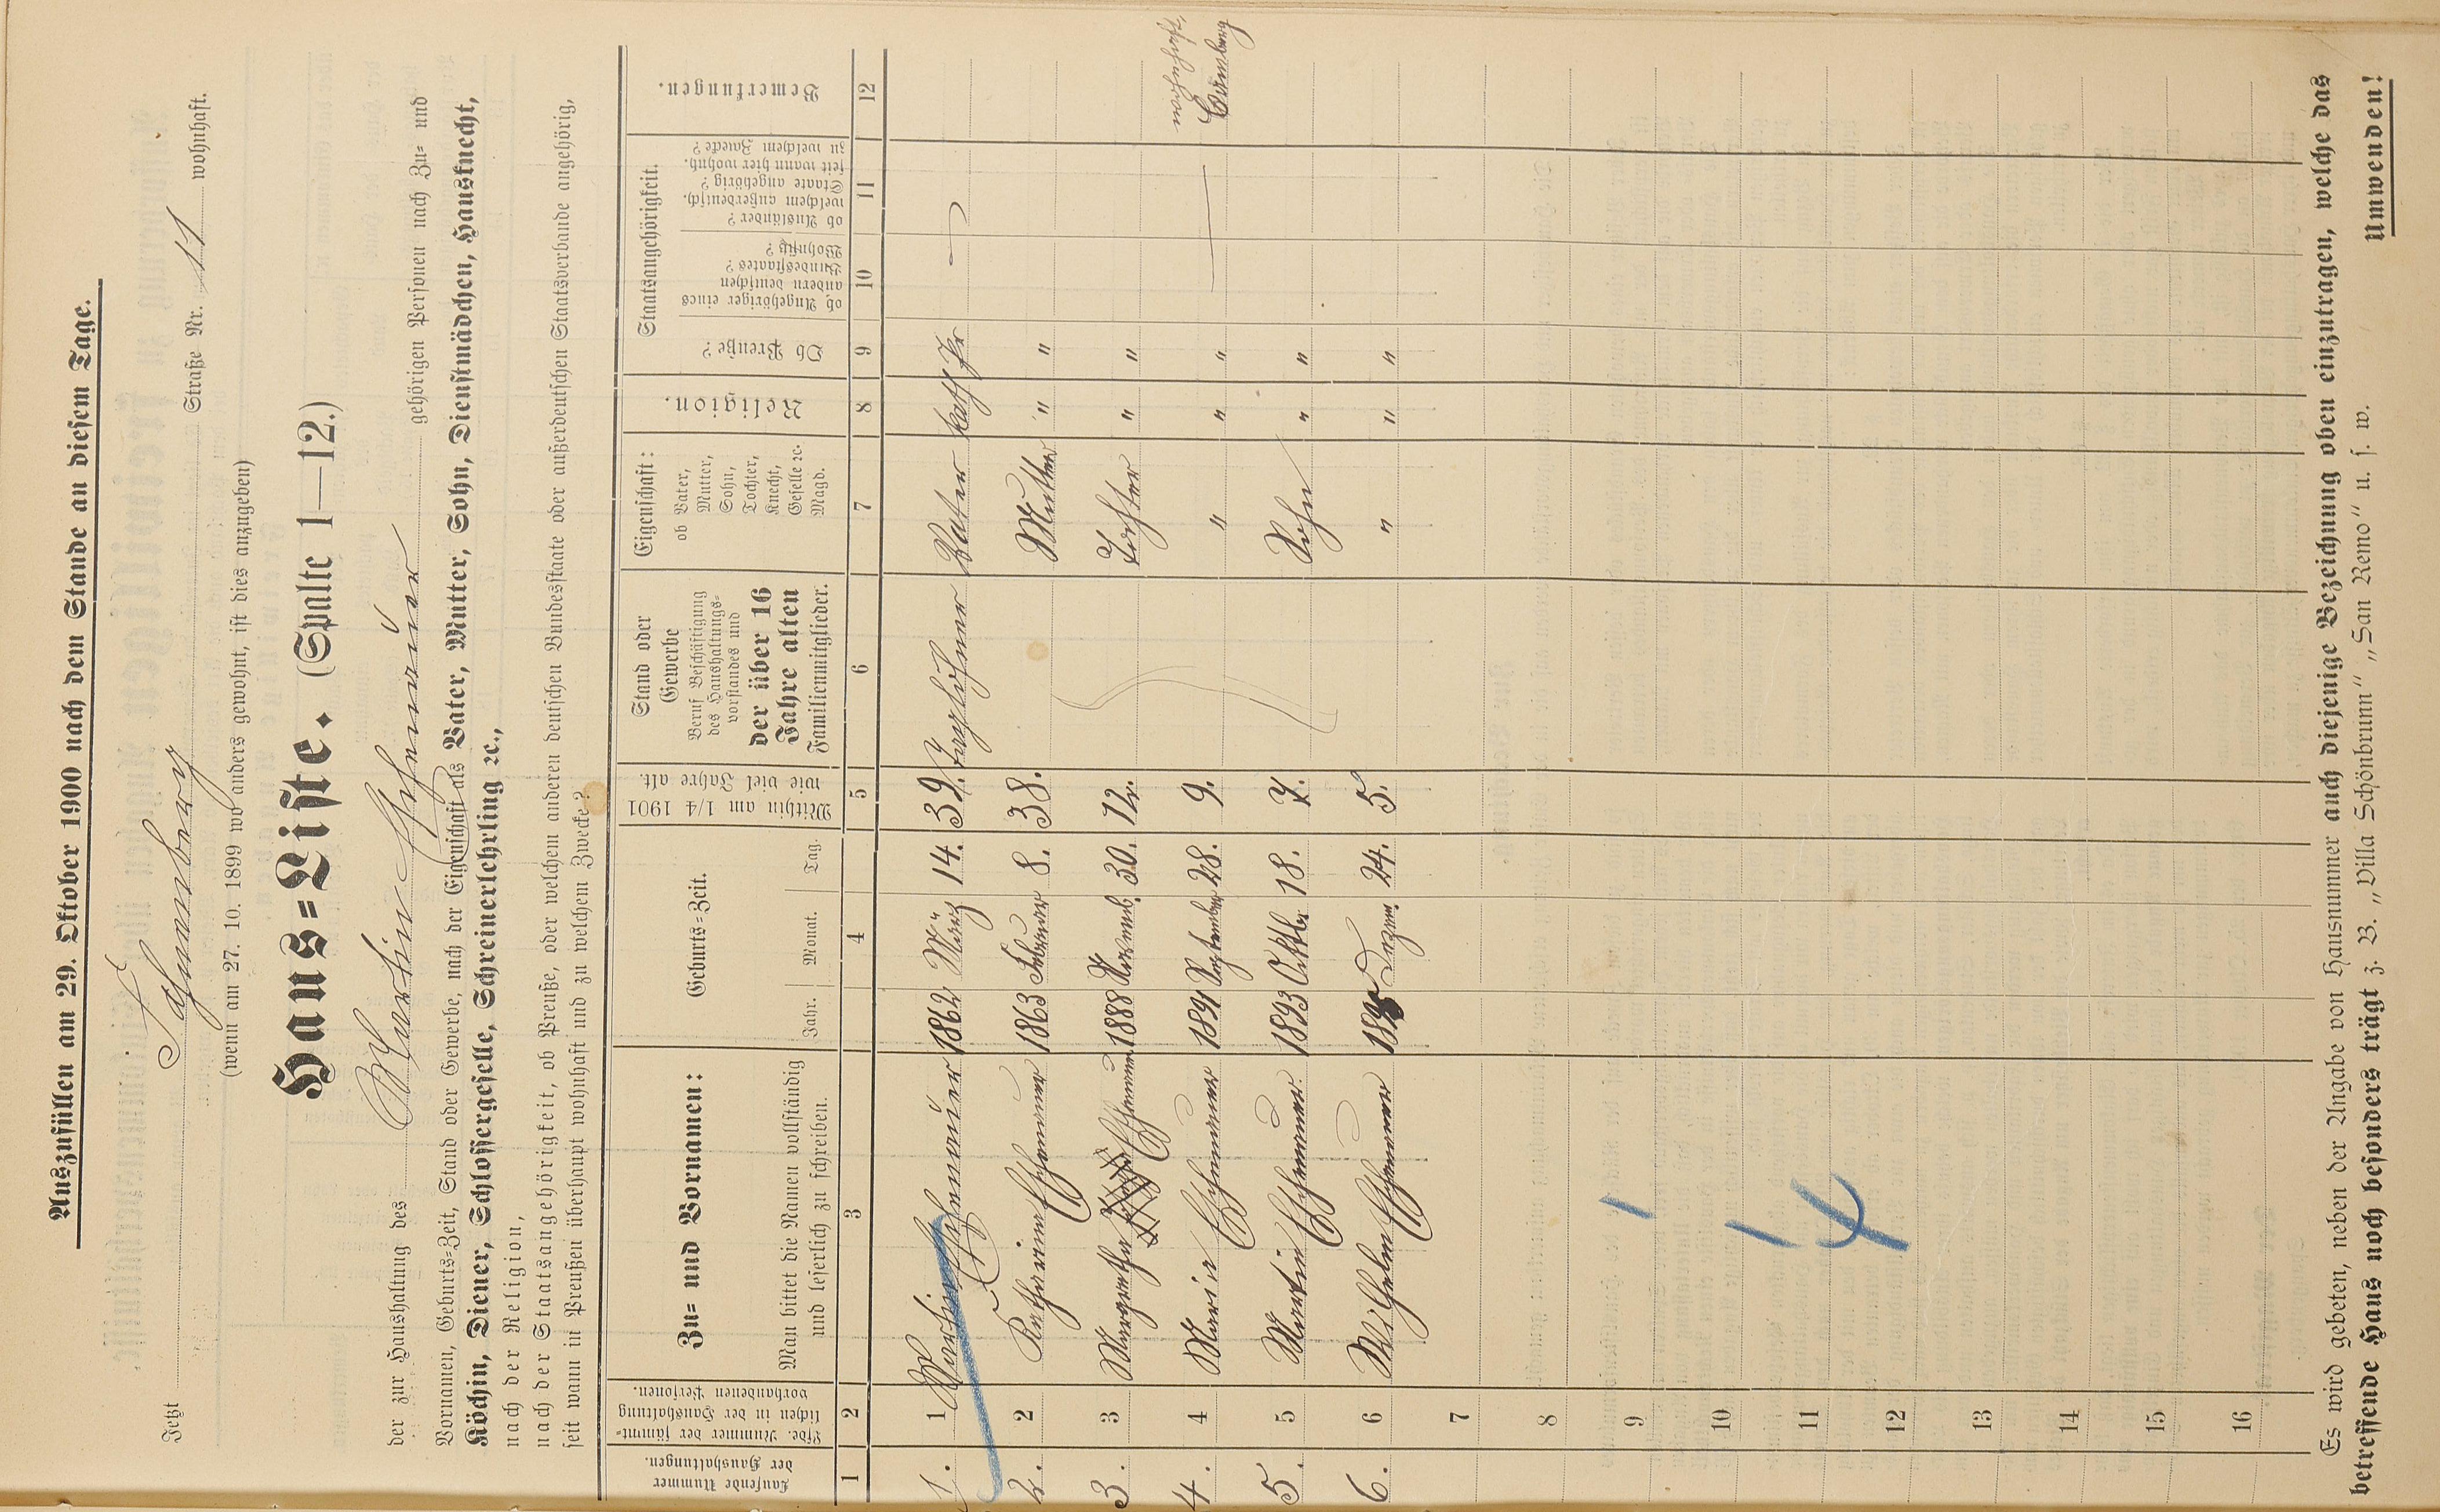 Auszufüllen am 29. Oktober 1900 nach dem Stande an diesem Tage.
Jetzt Straße Nr. 11 wohnhaft.
(wenn am 27. 10. 1899 wo anders gewohnt, ist dies anzugeben)
Haus=Liste. (Spalte 1—12.)
der zur Haushaltung des Martin gehörigen Personen nach Zu= und
Vornamen, Geburts=Zeit, Stand oder Gewerbe, nach der Eigenschaft als Vater, Mutter, Sohn, Dienstmädchen, Hausknecht,
Köchin, Diener, Schlossergeselle, Schreinerlehrling ꝛc.,
nach der Religion,
nach der Staatsangehörigkeit, ob Preuße, oder welchem anderen deutschen Bundesstaate oder außerdeutschen Staatsverbande angehörig,
seit wann in Preußen überhaupt wohnhaft und zu welchem Zwecke?
Laufende Nummer der Haushaltungen.
Lfde. Nummer der sämmt=lichen in der Haushaltung vorhandenen Personen.
Zu= und Vornamen:
Man bittet die Namen vollständig
und leserlich zu schreiben.
Geburts=Zeit.
Jahr. Monat. Tag.
Mithin am 1/4 1901 wie viel Jahre alt.
Stand oder
Gewerbe
Beruf Beschäftigung
des Haushaltungs=
vorstandes und
der über 16
Jahre alten
Familienmitglieder.
Eigenschaft:
ob Vater,
Mutter,
Sohn,
Tochter,
Knecht,
Geselle ꝛc.
Magd.
Religion.
Staatsangehörigkeit.
Ob Preuße?
ob Angehöriger eines
andern deutschen
Bundesstaates?
Wohnsitz?
ob Ausländer?
welchem außerdeutsch.
Staate angehörig?
seit wann hier wohnh.
zu welchem Zwecke?
Bemerkungen.
1 2 3 4 5 6 7 8 9 10 11 12
1. 1 Martin 1862 März 14. 39. Taglöhner Vater kath Pr
2. 2 Katharina 1863 Februar 8. 38. Mutter " "
3. 3 Margretha 1888 Novemb. 30. 12. Tochter " "
4. 4 Maria 1891 September 28. 9. " " "
Camberg
5. 5 Martin 1893 Oktbr 18. 7. Sohn " "
6. 6 Wilhelm Dezem. 24. 5. " " "
7
8
9
10
11
12
13
14
15
16
Es wird gebeten, neben der Angabe von Hausnummer auch diejenige Bezeichnung oben einzutragen, welche das
betreffende Haus noch besonders trägt z. B. „Villa Schönbrunn" „San Remo" u. s. w.
Umwenden!